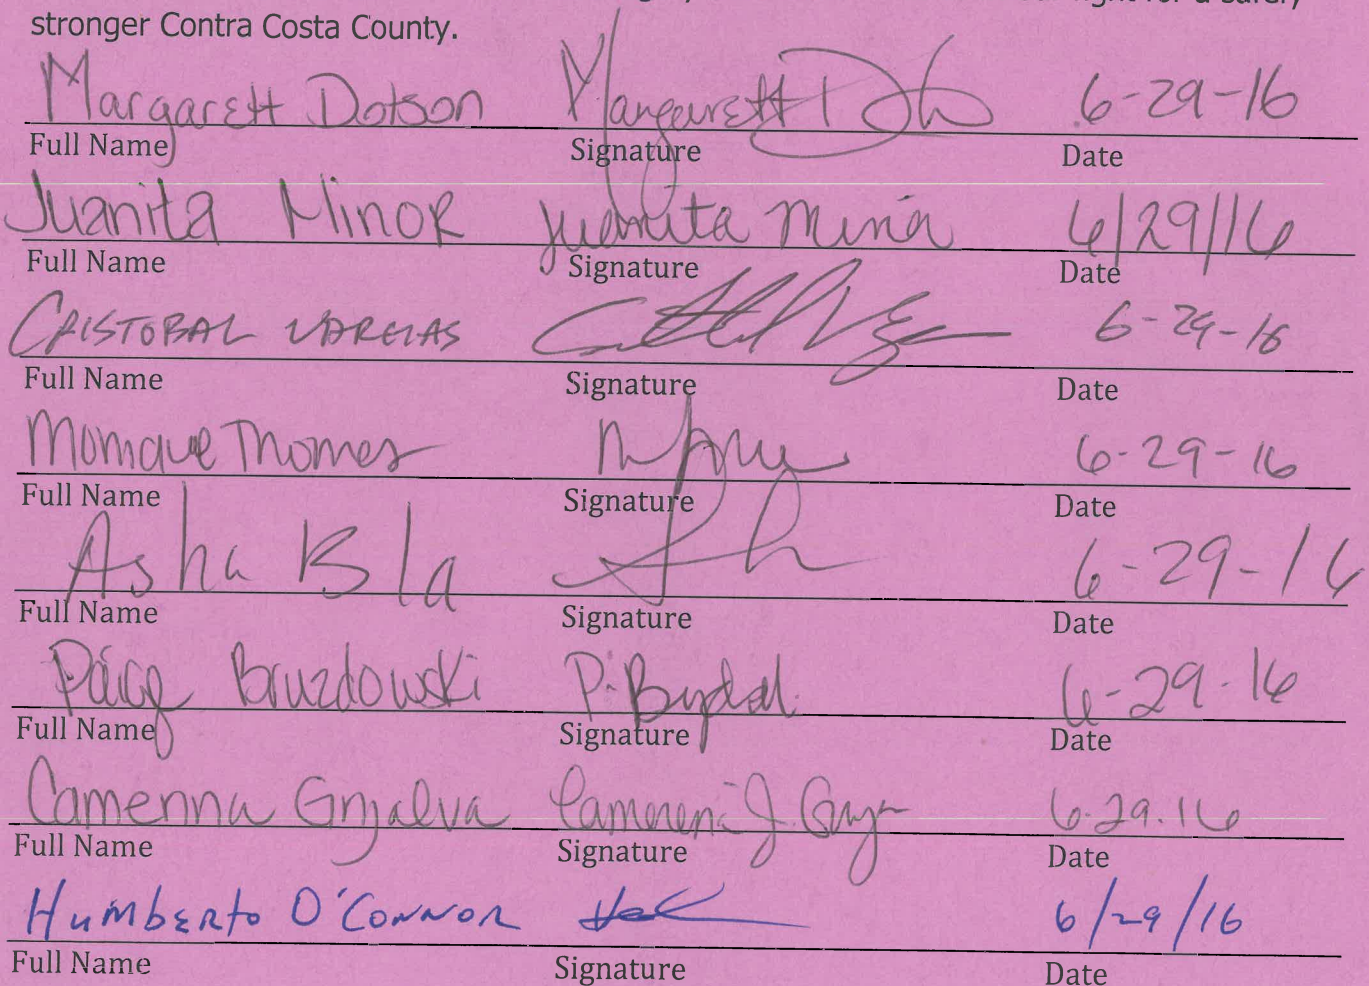 for a safer,
stronger Contra Costa County.
Margarett Dotson Margarett D 6-29-16
Full Name Signature Date
Juanita Minor Juanita Minor 6/29/16
Full Name Signature Date
CRISTOBAL VARGAS 6-29-16
Full Name Signature Date
Monique Thomas 6-29-16
Full Name Signature Date
Asha Bla 6-29-16
Full Name Signature Date
Paige Bruzdowski P. 6-29-16
Full Name Signature Date
Camerina Grijalva Camerina J. 6.29.16
Full Name Signature Date
Humberto O'Connor 6/29/16
Full Name Signature Date